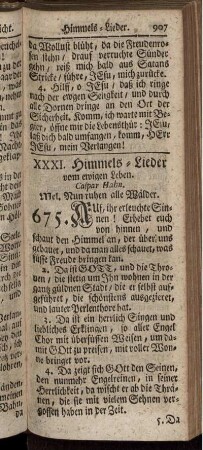 Himmels-Lieder. 907
da Wollust blüht, da die Freudenro-
sen stehn / drauf verruchte Sünder
gehn, reiß mich bald aus Satans
Stricke / führe, JEsu, mich zurücke.
4. Hilff, o JEsu, daß ich ringe
nach der ewgen Seligkeit / und durch
alle Dornen dringe an den Ort der
Sicherheit. Komm, ich warte mit Be-
gier, öffne mir die Lebensthür: JEsu
laß dich bald umfangen, komm, HErr
JEsu, mein Verlangen!
XXXI. Himmels-Lieder
vom ewigen Leben.
Caspar Hahn.
Mel. Nun ruhen alle Wälder.
675. Auf, ihr erleuchte Sin-
nen! Erhebet euch
von hinnen, und
schaut den Himmel an, der über uns
gebauet, und da man alles schauet, was
süsse Freude bringen kan.
2. Da ist GOTT, und die Thro-
nen, die stetig um Ihn wohnen in der
gantz güldnen Stadt, die er selbst auf-
geführet, die schönstens ausgezieret,
und lauter Perlenthore hat.
3. Da ist ein herrlich Singen und
liebliches Erklingen, so aller Engel
Chor mit übersüssen Weisen, um da-
mit GOtt zu preisen, mit voller Won-
ne bringet vor.
4. Da zeigt sich GOtt den Seinen,
den nunmehr Engelreinen, in seiner
Herrlichkeit, da wischt er ab die Thrä-
nen, die sie mit vielem Sehnen ver-
gossen haben in per Zeit.
5. Da